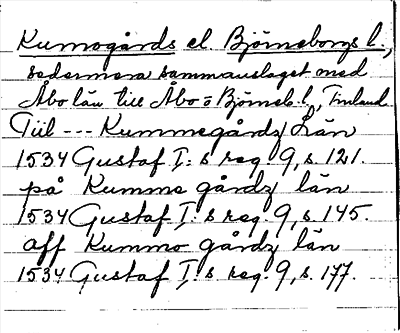 Kumogårds el Björneborgs l.,
sedermera sammanslaget med
Åbo län till Åbo o Björneb. l., Finland
Tiil --- Kummegårdz Län
1534 Gustaf I:s reg. 9, s. 121.
på Kumme gårdz län
1534 Gustaf I:s reg. 9, s. 145.
aff Kummo gårdz län
1534 Gustaf I:s reg. 9, s. 177.